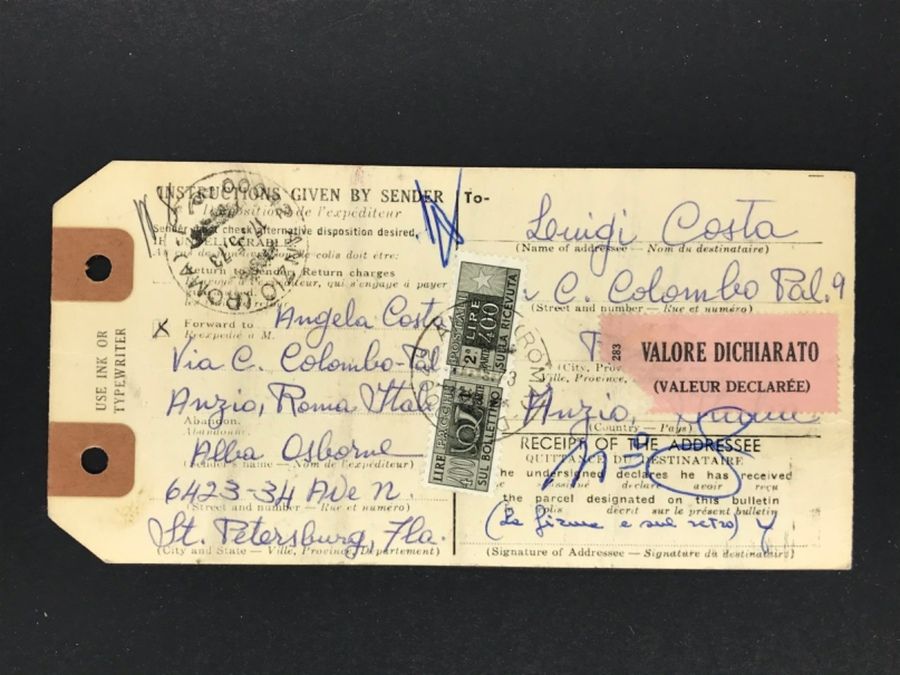 USE INK OR
TYPEWRITER
INSTRUCTIONS GIVEN BY SENDER
Sender must check alternative disposition desired,
IF UNDELIVERABLE
Return to Sender. Return charges
X Forward to Angela Costa
Réexpédié à M.
Via C. Colombo-Pal
Anzio, Roma Ital
Abandon.
Abandonné.
Alba Osborne
(Sender's name — Nom de l'expéditeur)
6423-34 Ave N.
(Street and number — Rue et numéro)
St. Petersburg, Fla.
(City and State — Ville, Province, Département)
To-
Luigi Costa
(Name of addressee - Nom du destinataire)
C. Colombo Pal. 9
(Street and number — Rue et numéro)
283
VALORE DICHIARATO
(VALEUR DECLARÉE)
Ville, Province,
Anzio,
(Country — Pays)
RECEIPT OF THE ADDRESSEE
QUITTANCE DU DESTINATAIRE
he undersigned declares he has received
the parcel designated on this bulletin
colis décrit sur le présent bulletin
(La firma è sul retro)
(Signature of Addressee — Signature du destinataire)
LIRE 400
SULLA RICEVUTA
LIRE 400
SUL BOLLETTINO